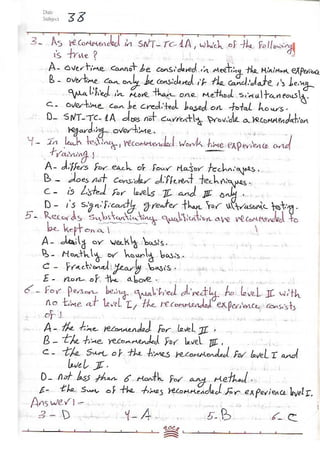 Date
Subject 38
3- As recommended in SNT-TC-1A, which of the following
is true?
A- overtime cannot be considered in meeting the Minimum experience
B- overtime can only be considered if the candidate is being
qualified in more than one Method simultaneously.
C- overtime can be credited based on total hours.
D- SNT-TC-1A does not currently provide a recommendation
regarding overtime.
4- In leak testing, recommended work time experience and
training:
A- differs for each of four Major techniques.
B- does not consider different techniques.
C- is Listed for levels II and III only.
D- is significantly greater than for ultrasonic testing.
5- Records substantiating qualification are recommended to
be kept on a:
A- daily or weekly basis.
B- Monthly or hourly basis.
C- Fractional yearly basis.
E- non of the above.
6- For person being qualified directly to level II with
no time at level I, the recommended experience consists
of:
A- the time recommended for level II.
B- the time recommended for level III.
C- the Sum of the times recommended for level I and
level II.
D- not less than 6 Month for any Method.
E- the Sum of the times recommended for experience level I.
Answer:-
3-D 4-A 5-B 6-C